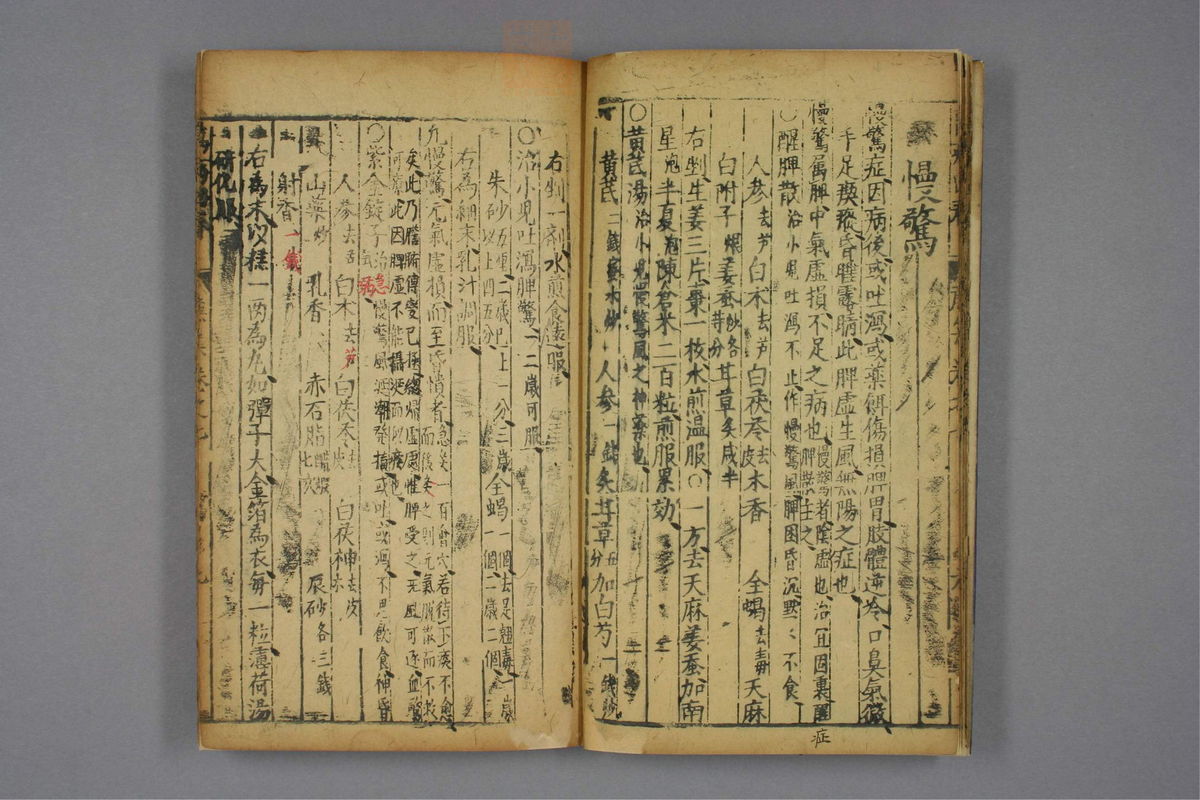 慢驚
慢驚症因病後或吐瀉或藥餌傷損脾胃肢體逆冷口鼻氣微
手足瘈瘲昏睡露睛此脾虛生風無陽之症也
慢驚屬脾中氣虛損不足之病也脾藥主之慢驚者陰虛也治宜因裏症
○醒脾散治小兒吐瀉不止作慢驚風脾困昏沉默々不食
人參去芦白术去芦白茯苓去皮木香 全蝎去毒天麻
白附子煨姜蚕炒各等分甘草炙咸半
右剉生姜三片棗一枚水煎溫服○一方去天麻姜蚕加南
星炮半夏泡陳倉米二百粒煎服累効
○黄芪湯治小兒慢驚風之神藥也
黄芪二錢蜜水炒人參一錢炙甘草五分加白芍一錢炒
右剉一剤水煎食遠服
○治小兒吐瀉脾驚一二歲可服
朱砂五厘二歲已上一分三歲以上四五分全蝎一個去足翅毒一歲一個二歲二個
右為細末乳汁調服
凡慢驚元氣虛損而至昏憒者急灸百會穴若待下痰不愈
而後灸之則元氣脫散而不救
矣此乃臟腑傳變已極總歸虛處惟脾受之无風可逐血驚
可療此因脾虛不能攝涎而似痰也
○紫金錠子治急慢驚風涎潮發搐或吐或瀉不思飲食神昏
氣弱
人參去芦白术去芦白茯苓去皮 白茯神去皮木
山藥炒 乳香 赤石脂醋煅七次 辰砂各三錢
射香一錢
右為末以糕一两為丸如彈子大金箔為衣每一粒薄荷湯
研化服